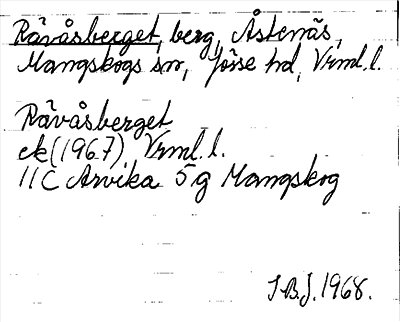 Rävåsberget, berg, Åstenäs,
Mangskogs sn, Jösse hd, Vrml. l.
Rävåsberget
ek (1967), Vrml. l.
11 C Arvika 5 g Mangskog
J.B.J. 1968.